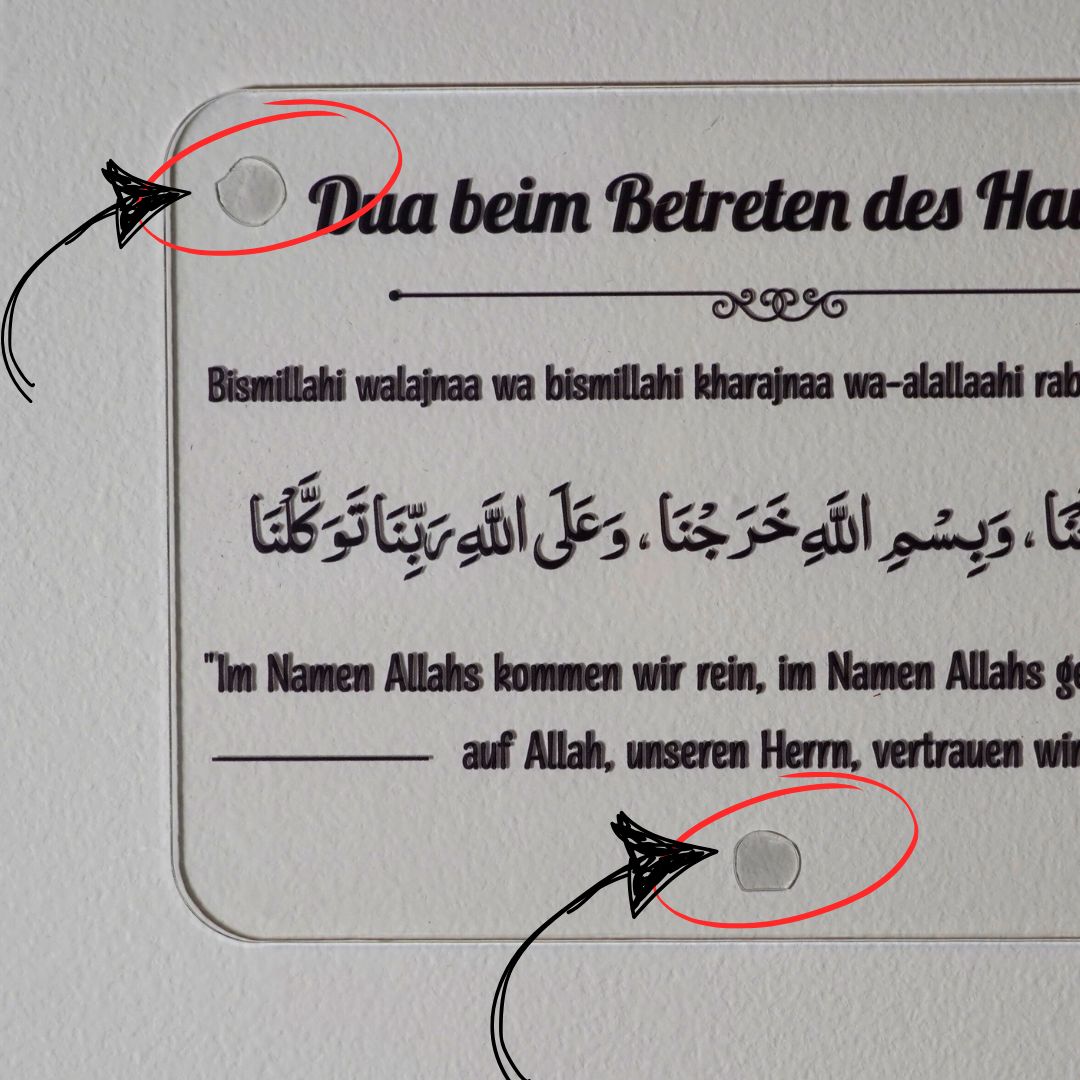 Dua beim Betreten des Hau
Bismillahi walajnaa wa bismillahi kharajnaa wa-alallaahi rab
، وَبِسْمِ اللَّهِ خَرَجْنَا ، وَعَلَى اللَّهِ رَبِّنَا تَوَكَّلْنَا
"Im Namen Allahs kommen wir rein, im Namen Allahs ge
auf Allah, unseren Herrn, vertrauen wir